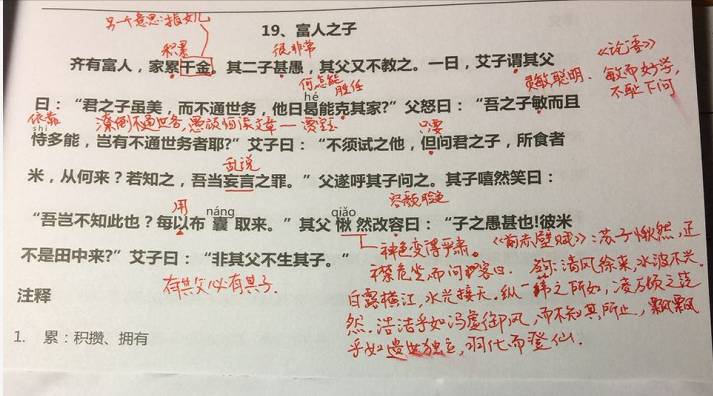 另一个意思：指女儿
19、富人之子
积累
很非常
《论语》
齐有富人，家累千金。其二子甚愚，其父又不教之。一日，艾子谓其父
灵敏聪明.
敏而好学,
不耻下问
何怎能
胜任
hé
曰：“君之子虽美，而不通世务，他日曷能克其家?”父怒曰：“吾之子敏而且
依靠
shì
潦倒不通世务,愚顽怕读文章一
只要
恃多能，岂有不通世务者耶?”艾子曰：“不须试之他，但问君之子，所食者
乱说
米，从何来？若知之，吾当妄言之罪。”父遂呼其子问之。其子嘻然笑曰：
用
容颜脸色
náng
qiǎo
“吾岂不知此也？每以布囊取来。”其父愀然改容曰：“子之愚甚也!彼米
神色变得严肃.
《前赤壁赋》：苏子愀然,正
不是田中来?”艾子曰：“非其父不生其子。”
有其父必有其子.
襟危坐,而问客曰.
清风徐来,水波不兴.
注释
白露横江,水光接天,纵一苇之所如,凌万顷之茫
然.浩浩乎如冯虚御风,而不知其所止,飘飘
1. 累：积攒、拥有
乎如遗世独立,羽化而登仙.